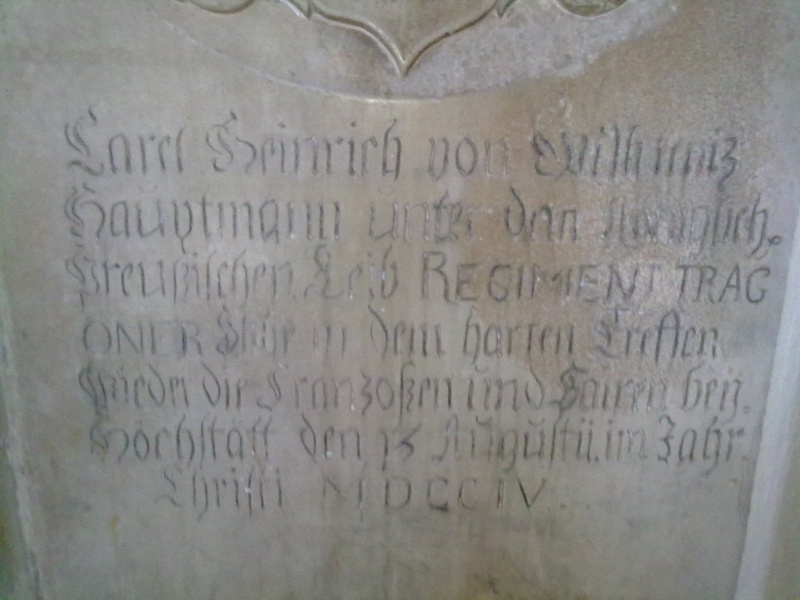 Carel Heinrich von
Hauptmann unter dem Königlich.
Preusischen Leib REGIMENT TRAG
ONER in dem harten Treffen
Wieder die Franzoßen und Bairen beij.
Höchstätt den 13 Augustü. im Jahr.
Christi MDCCIV